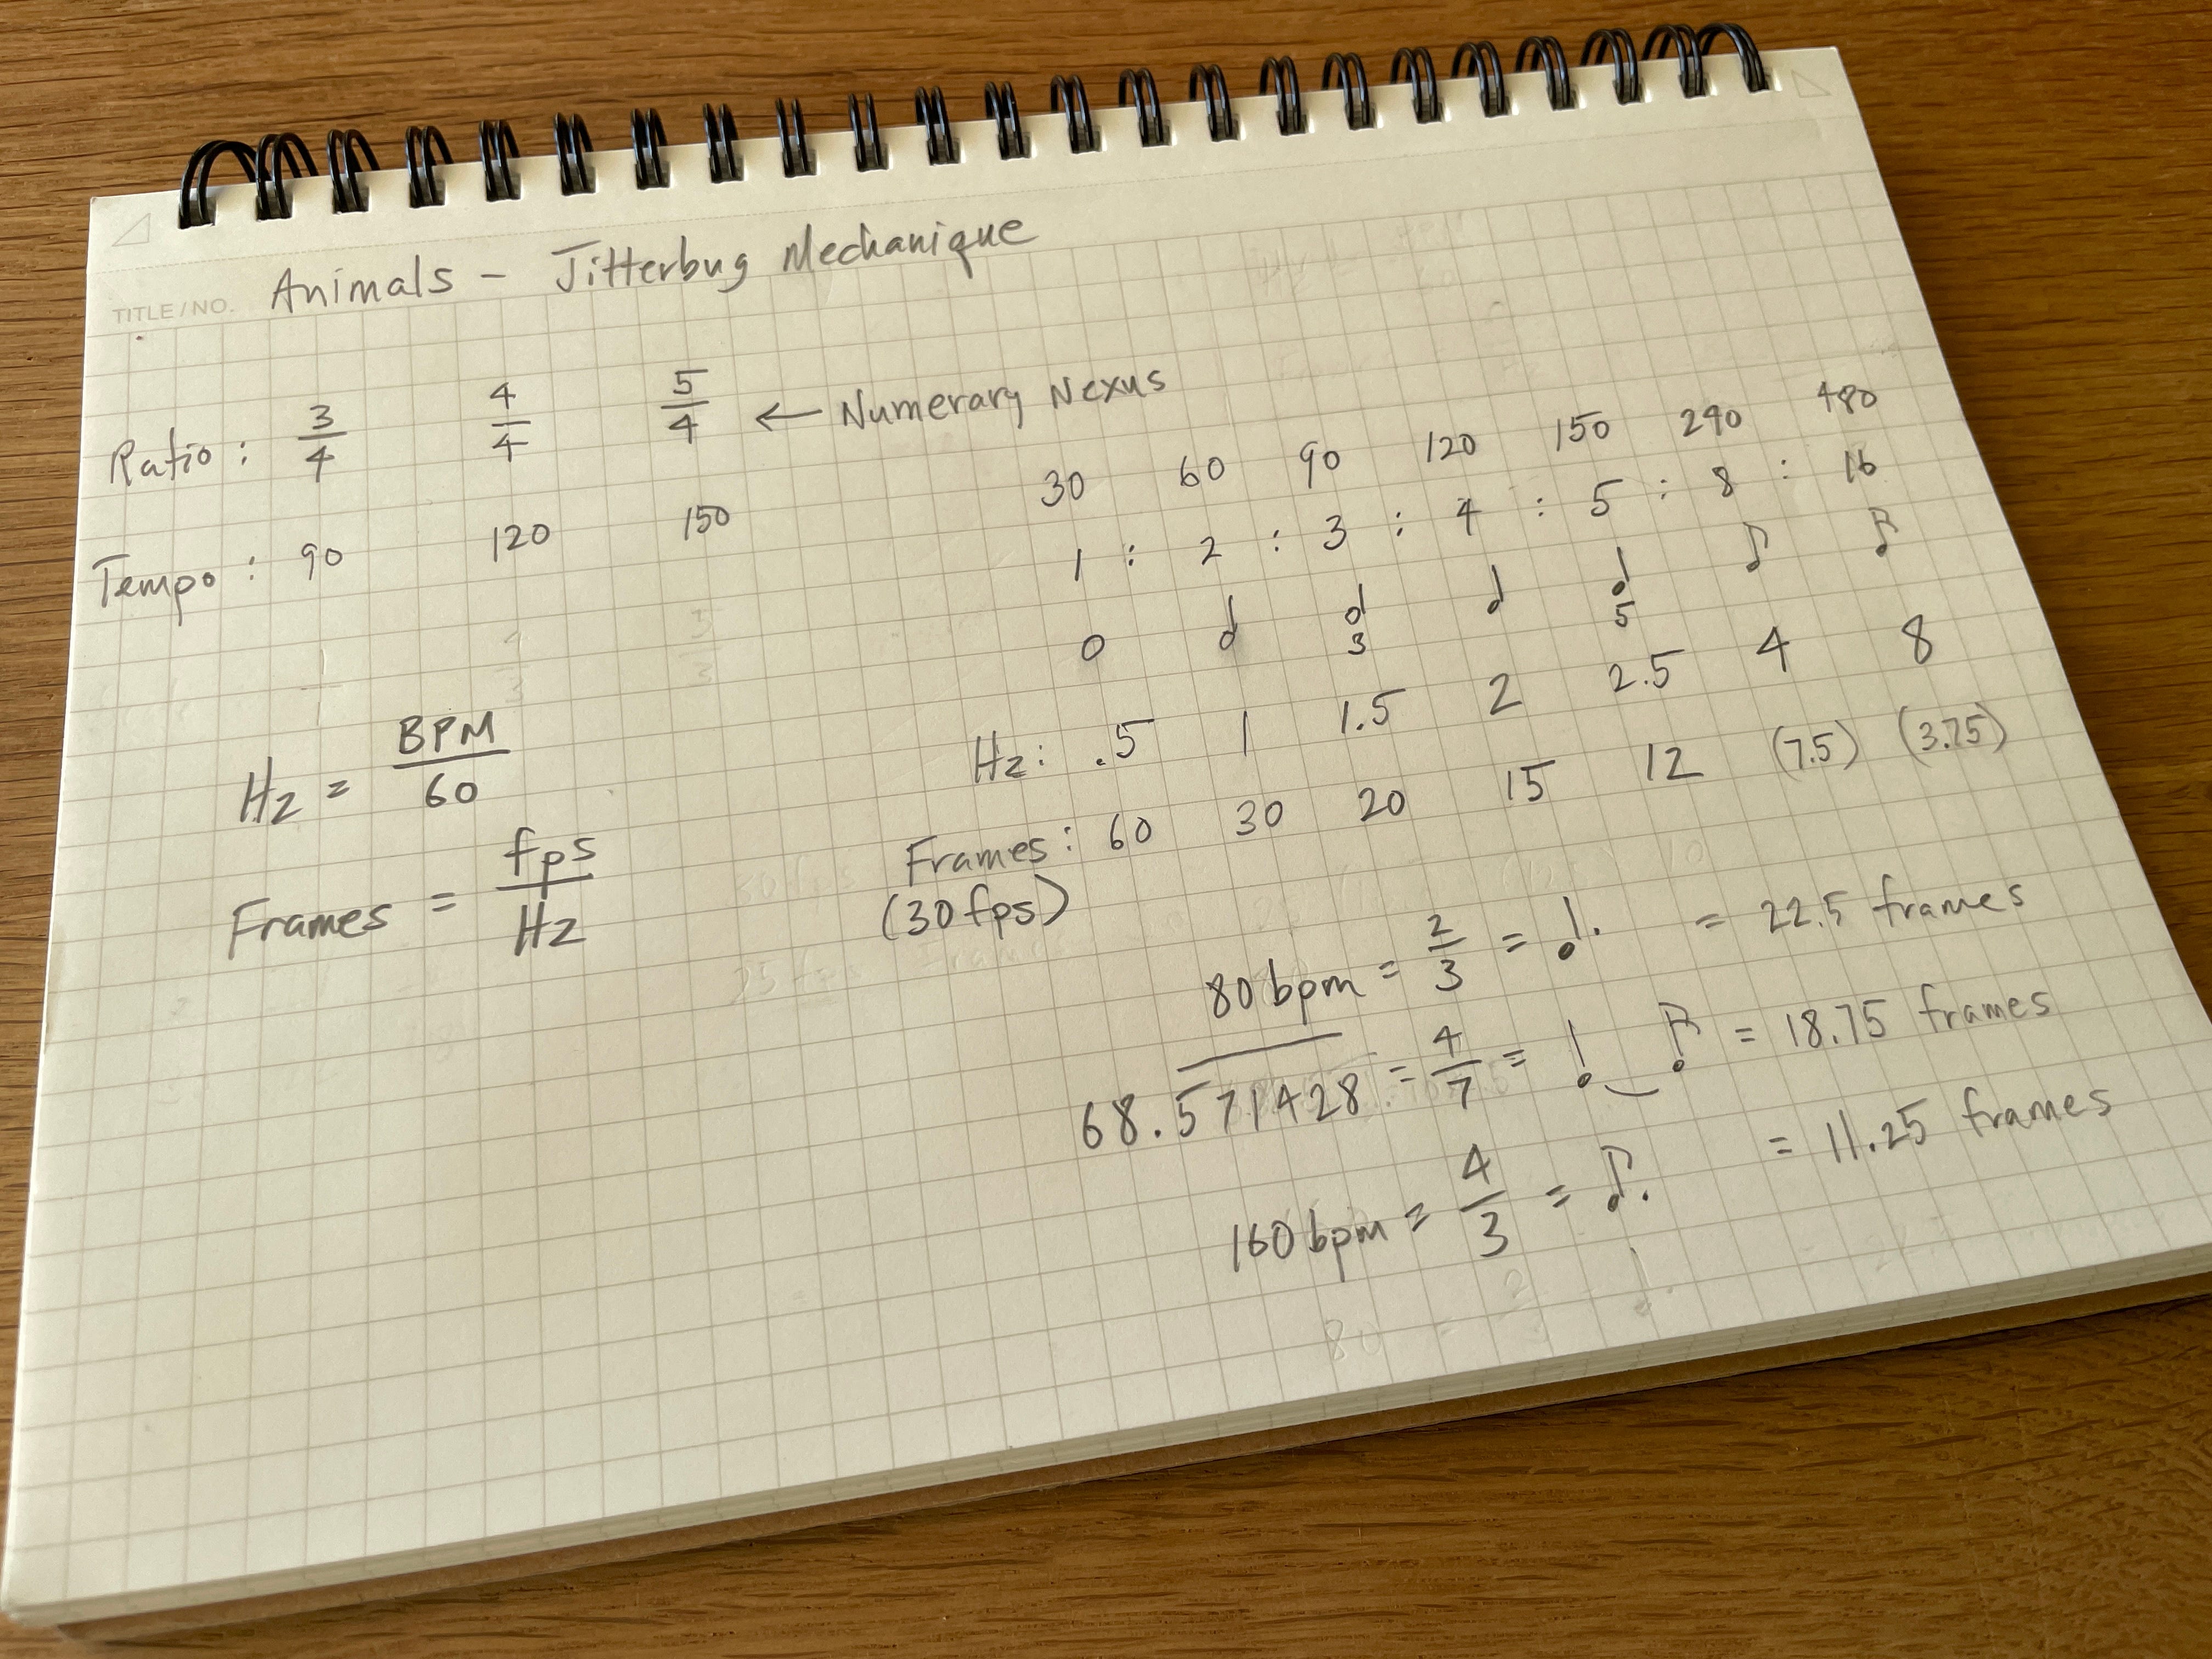 Animals - Jitterbug Mechanique
TITLE/NO.
Ratio: 3/4 4/4 5/4 ← Numerary Nexus
Tempo: 90 120 150
30 60 90 120 150 240 480
1 : 2 : 3 : 4 : 5 : 8 : 16
3 5
Hz: .5 1 1.5 2 2.5 4 8
Frames: 60 30 20 15 12 (7.5) (3.75)
(30fps)
Hz = BPM/60
Frames = fps/Hz
80bpm = 2/3 = 𝅘𝅥. = 22.5 frames
68.571428 = 4/7 = 𝅘𝅥‿♪ = 18.75 frames
160bpm = 4/3 = ♪. = 11.25 frames